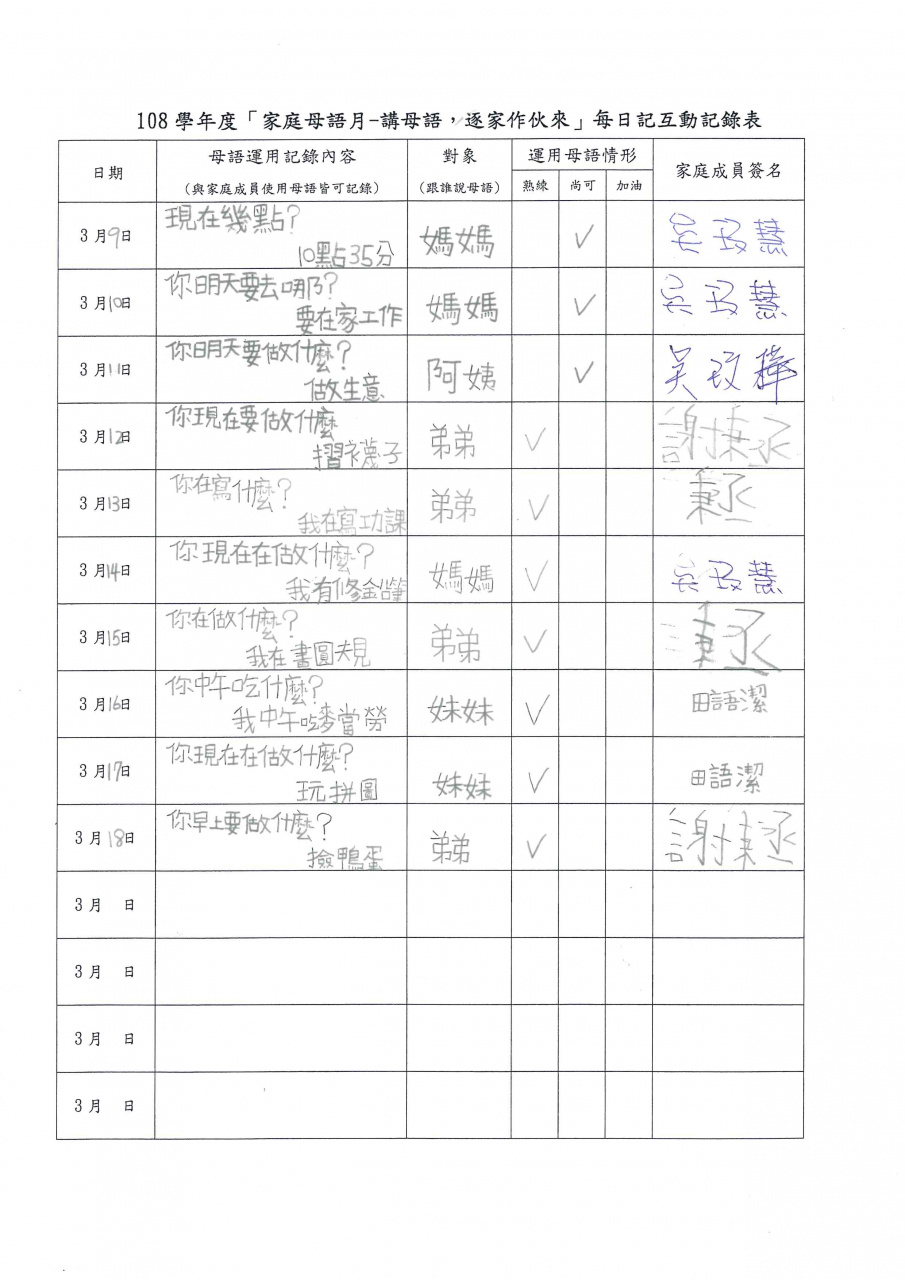 108 學年度「家庭母語月-講母語，逐家作伙來」每日記互動記錄表
日期
母語運用記錄內容
（與家庭成員使用母語皆可記錄）
對象
（跟誰說母語）
運用母語情形
熟練 尚可 加油
家庭成員簽名
3 月 9 日 現在幾點?
10點35分
媽媽 ✓
3 月 10 日 你明天要去哪?
要在家工作
媽媽 ✓
3 月 11 日 你明天要做什麼?
做生意
阿姨 ✓
3 月 12 日 你現在要做什麼
摺襪子
弟弟 ✓ 謝秉丞
3 月 13 日 你在寫什麼?
我在寫功課
弟弟 ✓ 秉丞
3 月 14 日 你現在在做什麼?
我有修
媽媽 ✓
3 月 15 日 你在做什麼?
我在
弟弟 ✓ 秉丞
3 月 16 日 你中午吃什麼?
我中午吃麥當勞
妹妹 ✓ 田語潔
3 月 17 日 你現在在做什麼?
玩拼圖
妹妹 ✓ 田語潔
3 月 18 日 你早上要做什麼?
撿鴨蛋
弟弟 ✓ 謝秉丞
3 月 日
3 月 日
3 月 日
3 月 日